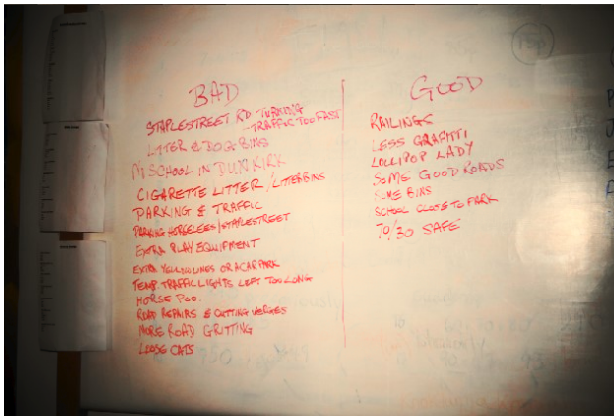 BAD
STAPLESTREET RD TURNING
- TRAFFIC TOO FAST
LITTER & DOG BINS
SCHOOL IN DUNKIRK
CIGARETTE LITTER / LITTERBINS
PARKING & TRAFFIC
PARKING HORSELEES/STAPLESTREET
EXTRA PLAY EQUIPMENT
EXTRA YELLOW LINES OR A CAR PARK
TEMP. TRAFFIC LIGHTS LEFT TOO LONG
HORSE POO.
ROAD REPAIRS & CUTTING VERGES
MORE ROAD GRITTING
LOOSE CATS
GOOD
RAILINGS
LESS GRAFITTI
LOLLIPOP LADY
SOME GOOD ROADS
SOME BINS
SCHOOL CLOSE TO PARK
/30 SAFE